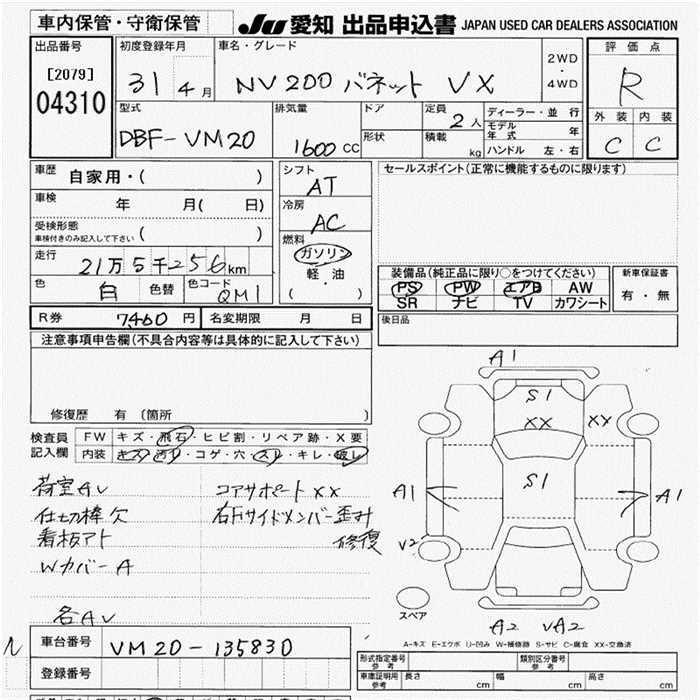 車内保管・守衛保管
JU 愛知 出品申込書 JAPAN USED CAR DEALERS ASSOCIATION
出品番号
[2079]
04310
初度登録年月
31 4月
車名・グレード
NV200 バネット VX
2WD
・
4WD
評価点
R
外装 内装
C C
型式
DBF-VM20
排気量
1600 CC
ドア
形状
定員
2人
積載
kg
ディーラー・並 行
モデル年式 年
ハンドル 左・右
車歴
自家用・( )
車検
年 月( 日)
受検形態
車検付きのみ記入して下さい ( )
走行
21万5千256km
色
白
色替
色コード
QM1
シフト
AT
冷房
AC
燃料
ガソリン
軽・油
( )
セールスポイント(正常に機能するものに限ります)
装備品(純正品に限り○をつけてください)
PS PW エアB AW
SR ナビ TV カワシート
新車保証書
有・無
R券 7,460 円
名変期限 月 日
後日品
注意事項申告欄(不具合内容等は具体的に記入して下さい)
修復歴 有 〔箇所 〕
検査員
記入欄
FW キズ・飛石・ヒビ割・リペア跡・X要
内装 キズ・汚リ・コゲ・穴・スレ・キレ・破レ
荷室AV
仕切棒欠
看板アト
WカバーA
各AV
コアサポートXX
右Fサイドメンバー歪み
修復
A1
S1
XX
XX
S1
A1
A1
V2
スペア
A2 VA2
A-キズ E-エクボ U-凹み W-補修跡 S-サビ C-腐食 XX-交換済
車台番号 VM20-135830
登録番号
形式指定番号
参考
類別区分番号
参考
車庫証明用
参考
長さ cm
幅 cm
高さ cm